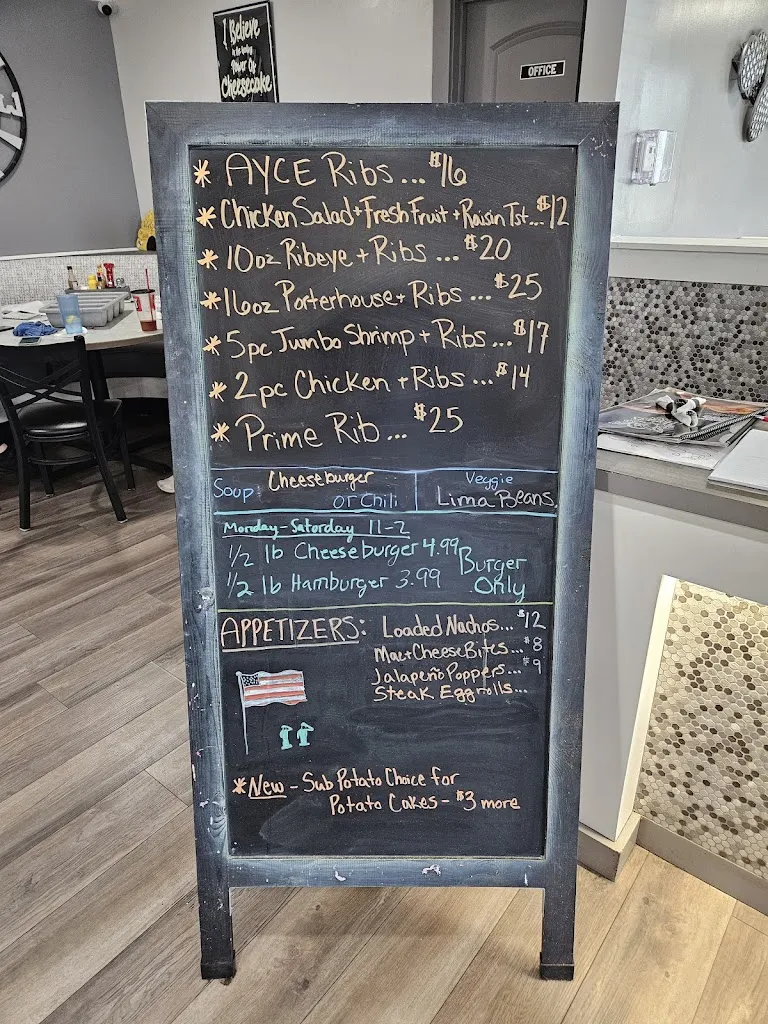 I Believe
in the healing
Power Of
Cheesecake
OFFICE
* AYCE Ribs... $16
* Chicken Salad + Fresh Fruit + Raisin Tst... $12
* 10oz Ribeye + Ribs ... $20
* 16oz Porterhouse + Ribs ... $25
* 5pc Jumbo Shrimp + Ribs... $17
* 2pc Chicken + Ribs ... $14
* Prime Rib... $25
Soup Cheeseburger
or Chili
Veggie
Lima Beans
Monday-Saturday 11-2
1/2 lb Cheeseburger 4.99
1/2 lb Hamburger 3.99
Burger
Only
APPETIZERS: Loaded Nachos... $12
Mac+Cheese Bites... $8
Jalapeño Poppers... $9
Steak Eggrolls...
*New - Sub Potato Choice for
Potato Cakes - $3 more